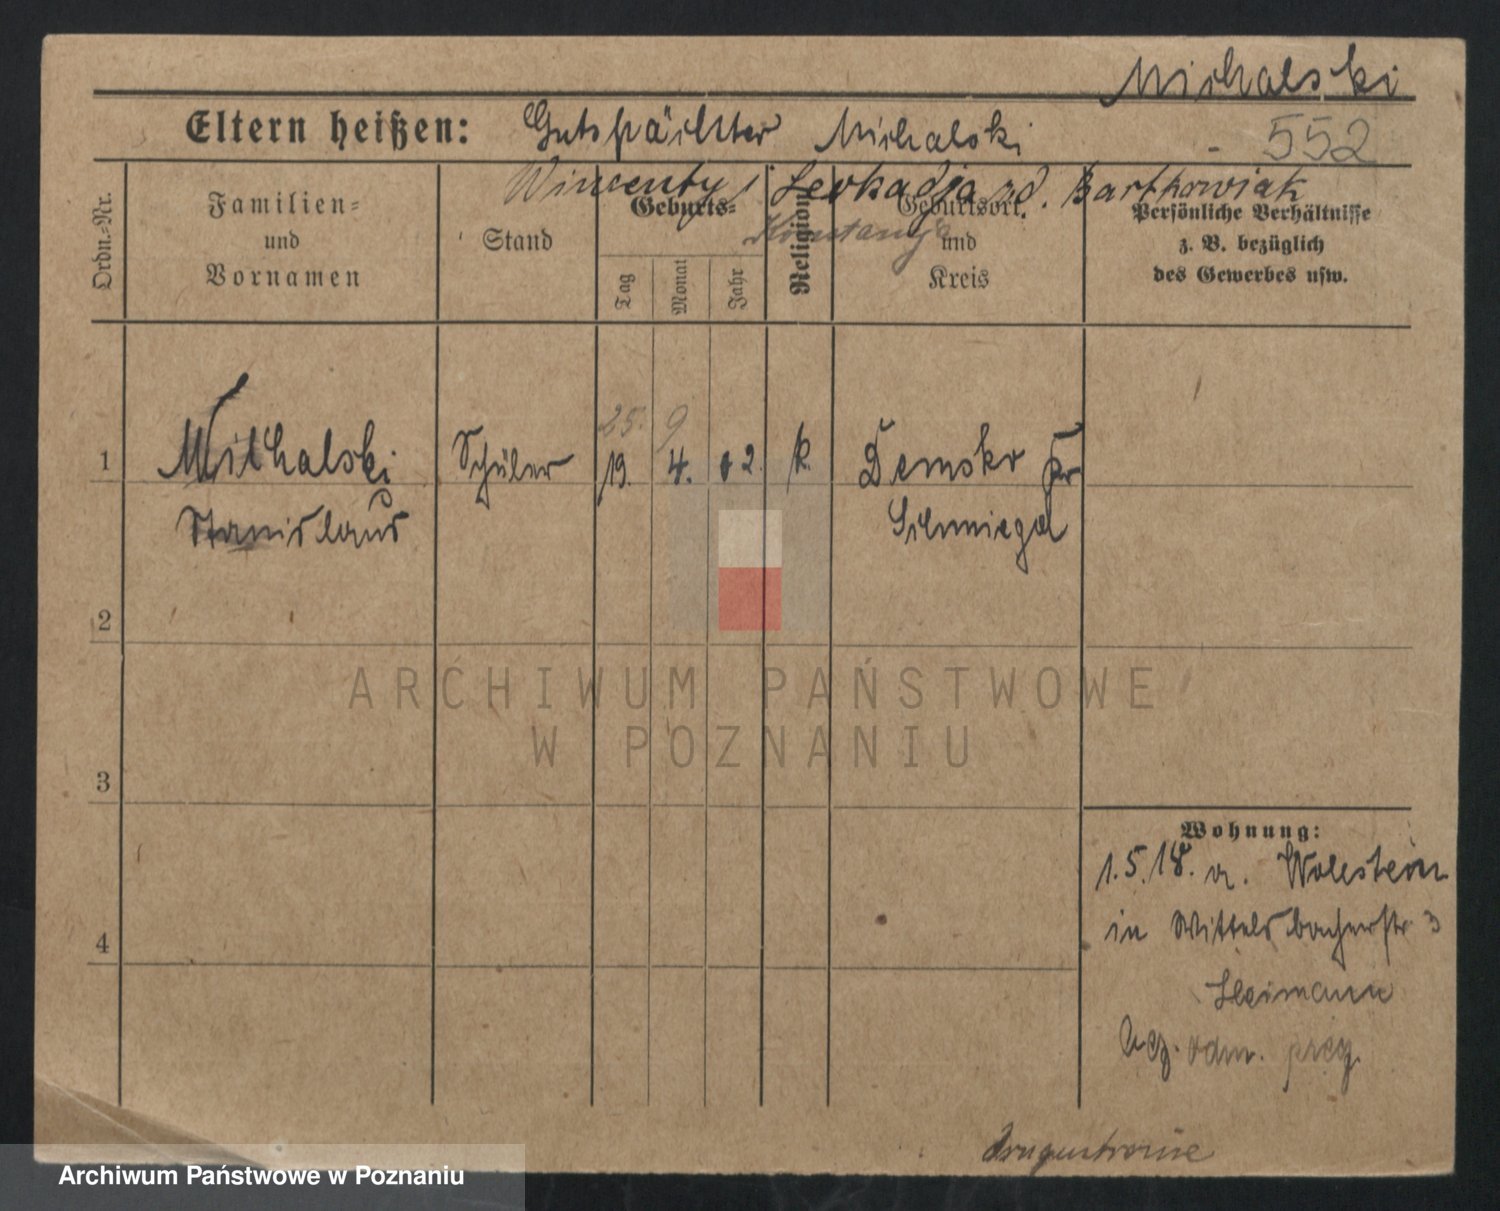 Michalski
Eltern heißen: Gutspächter Michalski - 552
Wincenty, Leokadja zd. Bartkowiak
Konstancja
Ordn.-Nr.
Familien-
und
Vornamen
Stand
Geburts-
Tag
Monat
Jahr
Religion
Geburtsort
und
Kreis
Persönliche Verhältnisse
z. B. bezüglich
des Gewerbes usw.
25. 9
1 Michalski Schüler 19. 4. 02. k. Demsko Kr
Stanislaus Schmiegel
2
3
4
Wohnung:
1.5.18. a. Wollstein
in Wittelsbacherstr 3
Heimann
ARCHIWUM PAŃSTWOWE
W POZNANIU
Archiwum Państwowe w Poznaniu